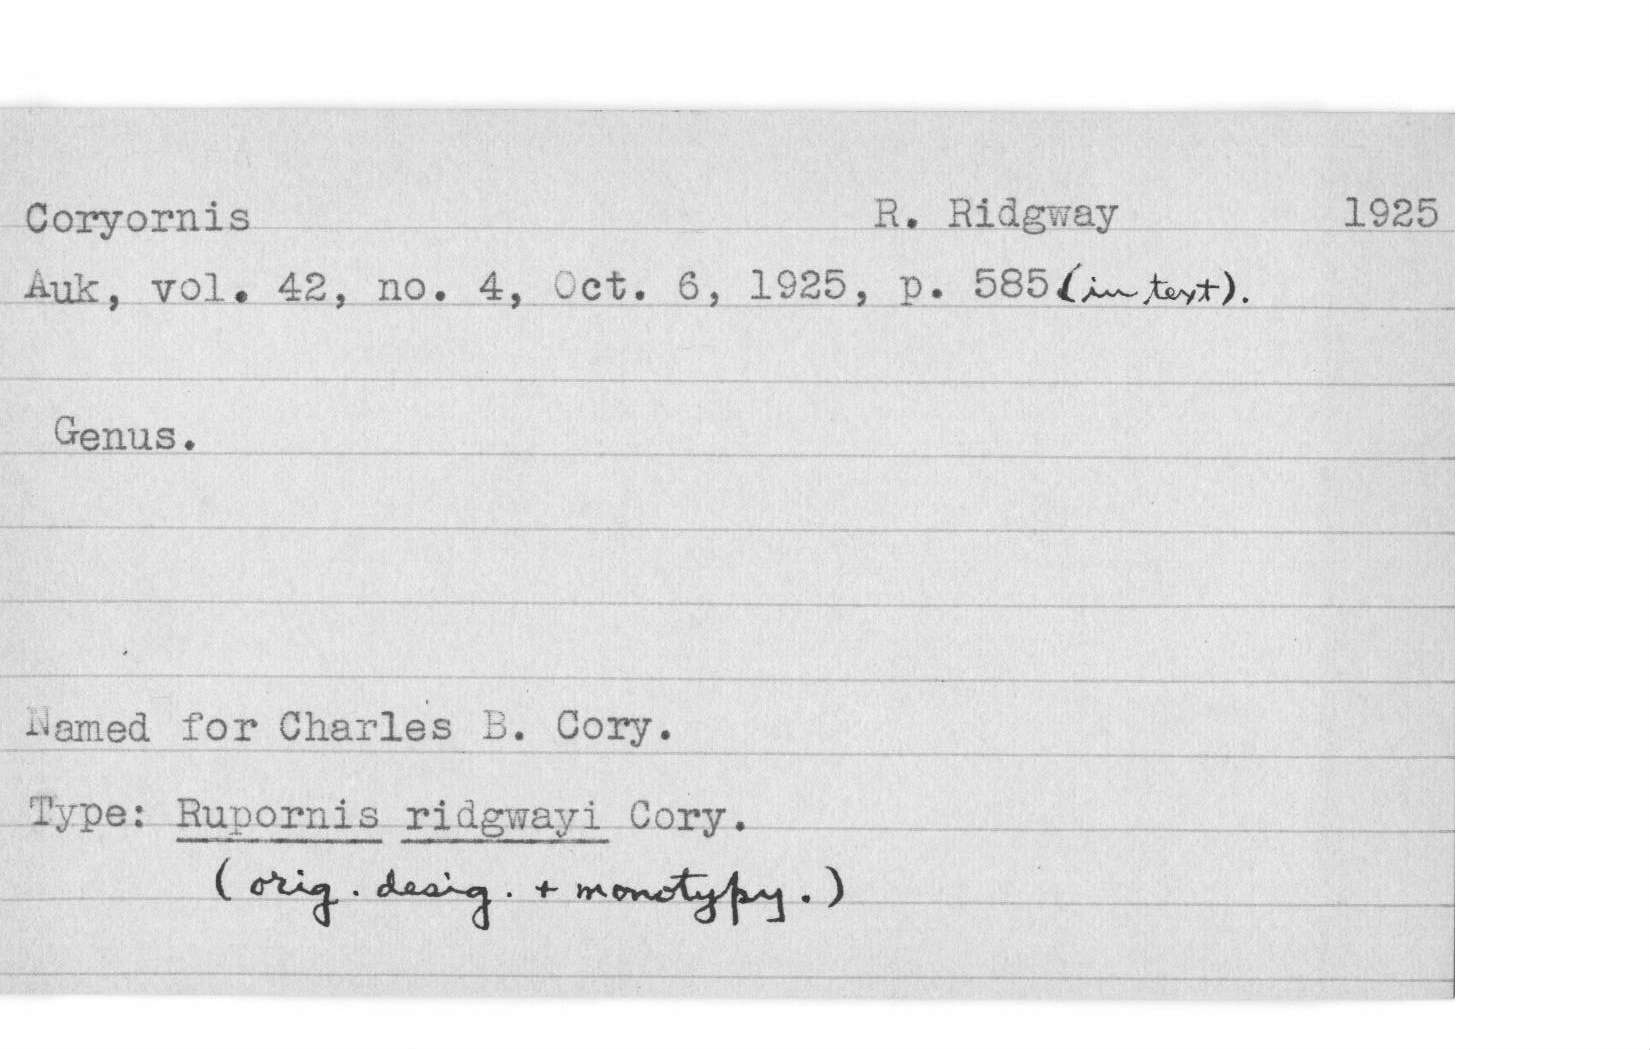 Coryornis R. Ridgway 1925
Auk, vol. 42, no. 4, Oct. 6, 1925, p. 585 (in text).
Genus.
Named for Charles B. Cory.
Type: Rupornis ridgwayi Cory.
(orig. desig. + monotypy.)